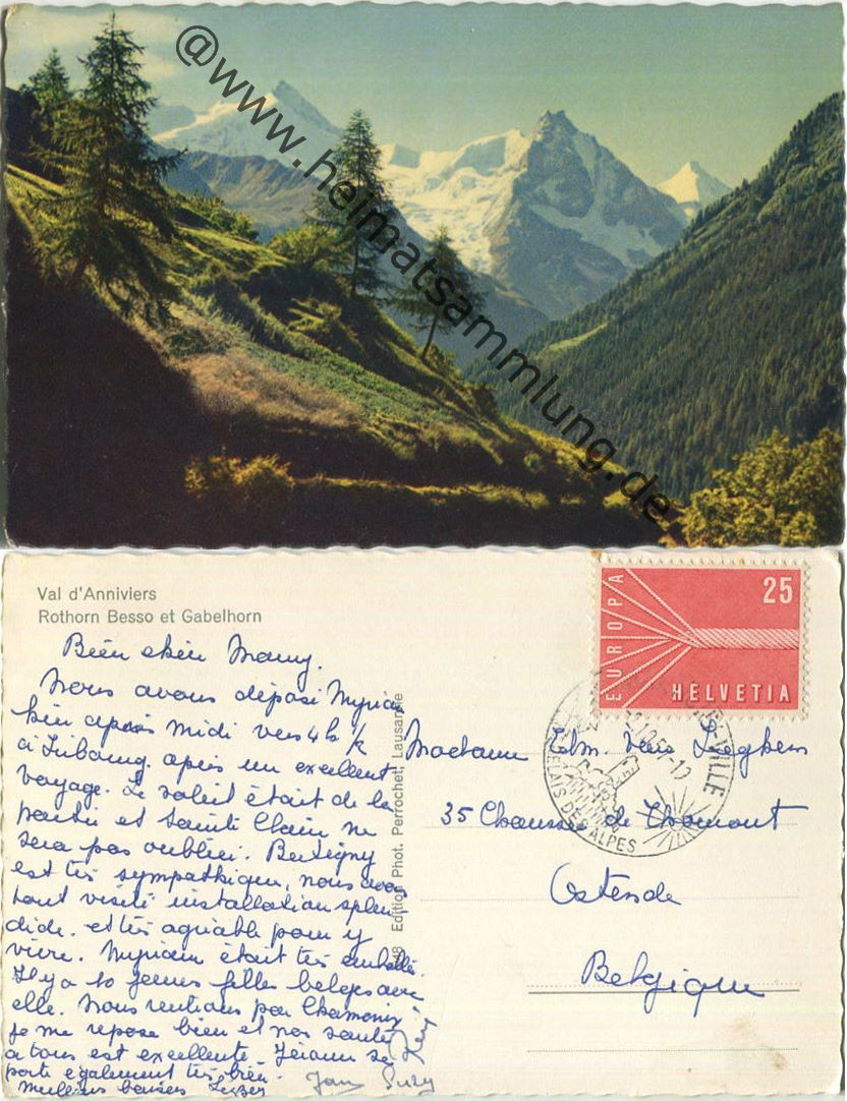 @www.heimatsammlung.de
Val d'Anniviers
Rothorn Besso et Gabelhorn
EUROPA
25
HELVETIA
RELAIS DES ALPES
48 Edition Phot. Perrochet, Lausanne
Bien chère Mamy.
Nous avons déposé Myriam
hier après midi vers 4h ½
à Fribourg. après un excellent
voyage. Le soleil était de la
partie et Sainte Claire ne
sera pas oubliée. Bertigny
est très sympathique, nous avons
tout visité installation splen-
dide. et très agréable pour y
vivre. Myriam était très emballée.
Il y a 10 jeunes filles belges avec
elle. Nous rentrons par Chamonix
je me repose bien et nos santés
à tous est excellente. se
porte également très bien.
Meilleurs baisers
Madame
35 Chaussée de
Ostende
Belgique